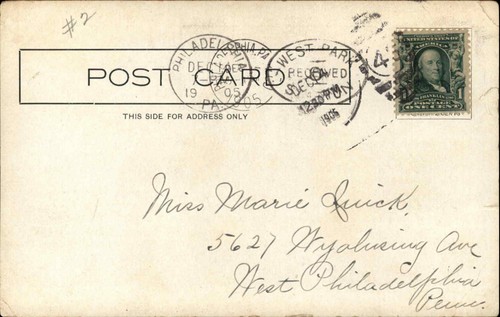 #2
POST CARD
PHILADELPHIA, PA.
DEC 4
1905
PA.
WEST PARK
RECEIVED
DEC 4
1905
4
AMERICA
POSTAGE
ONE CENT
1
THIS SIDE FOR ADDRESS ONLY
Miss Marie Quick,
5627 Wyalusing Ave
West Philadelphia
Penn.